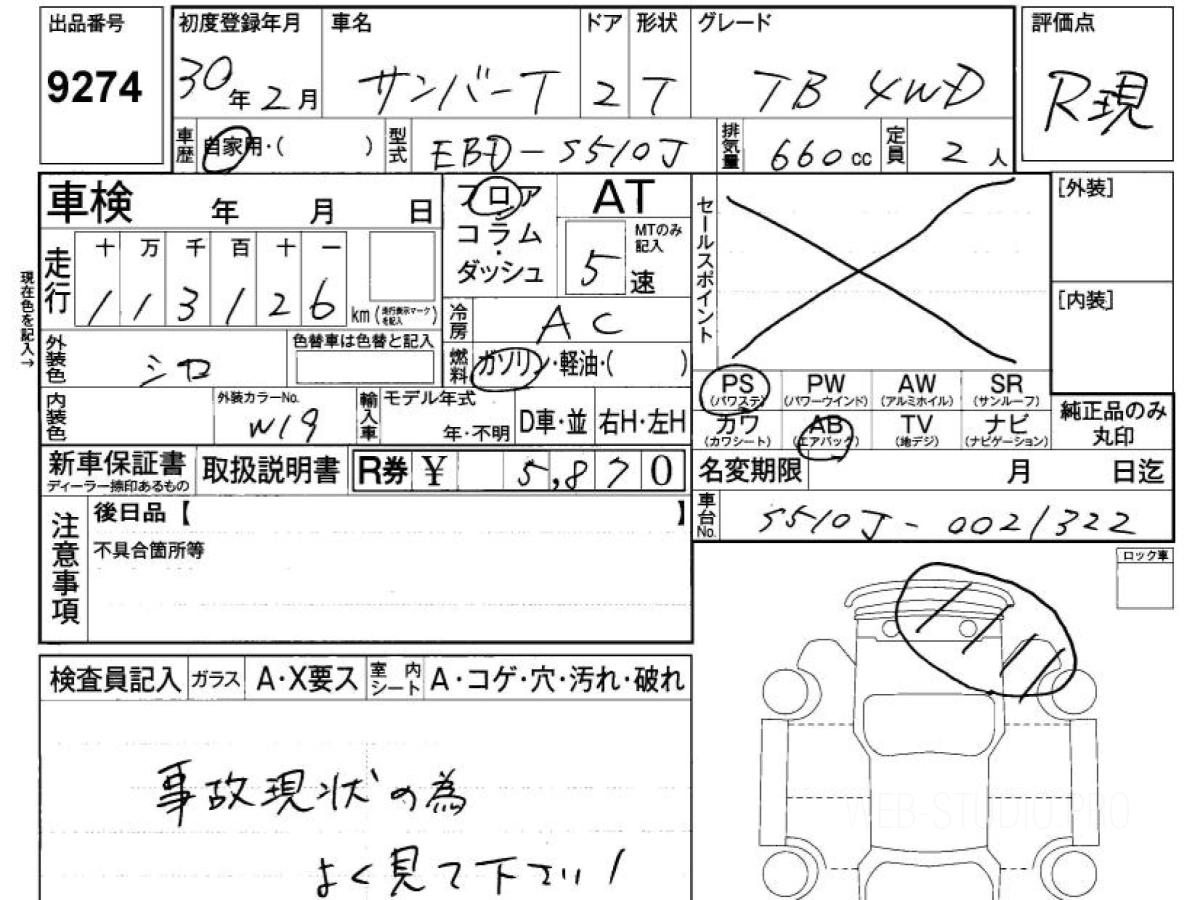 出品番号
9274
初度登録年月
30年2月
車名
サンバーT
ドア
2
形状
T
グレード
TB 4WD
評価点
R現
車歴
自家用・( )
型式
EBD-S510J
排気量
660cc
定員
2人
車検 年 月 日
走行
十 万 千 百 十 一
1 1 3 1 2 6 km (走行表示マークを記入)
現在色を記入→
外装色
シロ
色替車は色替と記入
内装色
外装カラーNo.
W19
輸入車
モデル年式
年・不明
D車・並
右H・左H
フロア
コラム
・
ダッシュ
AT
MTのみ記入
5速
冷房
AC
燃料
ガソリン・軽油・( )
セールスポイント
[外装]
[内装]
純正品のみ丸印
PS
(パワステ)
PW
(パワーウインド)
AW
(アルミホイル)
SR
(サンルーフ)
カワ
(カワシート)
AB
(エアバッグ)
TV
(地デジ)
ナビ
(ナビゲーション)
新車保証書
ディーラー捺印あるもの
取扱説明書
R券 ¥ 5,870
名変期限 月 日迄
車台No.
S510J-0021322
注意事項
後日品【 】
不具合箇所等
ロック車
検査員記入
ガラス
A・X要ス
室内シート
A・コゲ・穴・汚れ・破れ
事故現状の為
よく見て下さい!
WEB-STUDIO.PRO